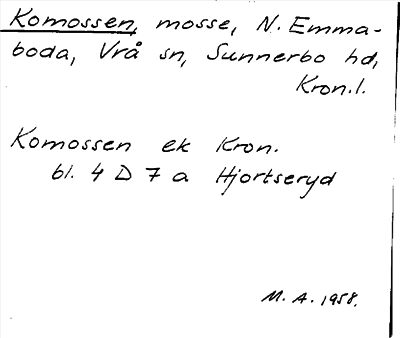 Komossen, mosse, N. Emma-
boda, Vrå sn, Sunnerbo hd,
Kron.l.
Komossen ek Kron.
bl. 4 D 7 a Hjortseryd
M. A. 1958.